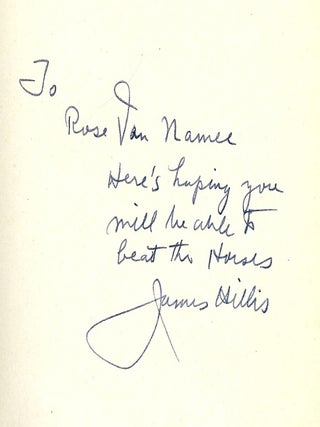 To
Rose Van Namee
Here's hoping you
will be able to
beat the Horses
James Hillis